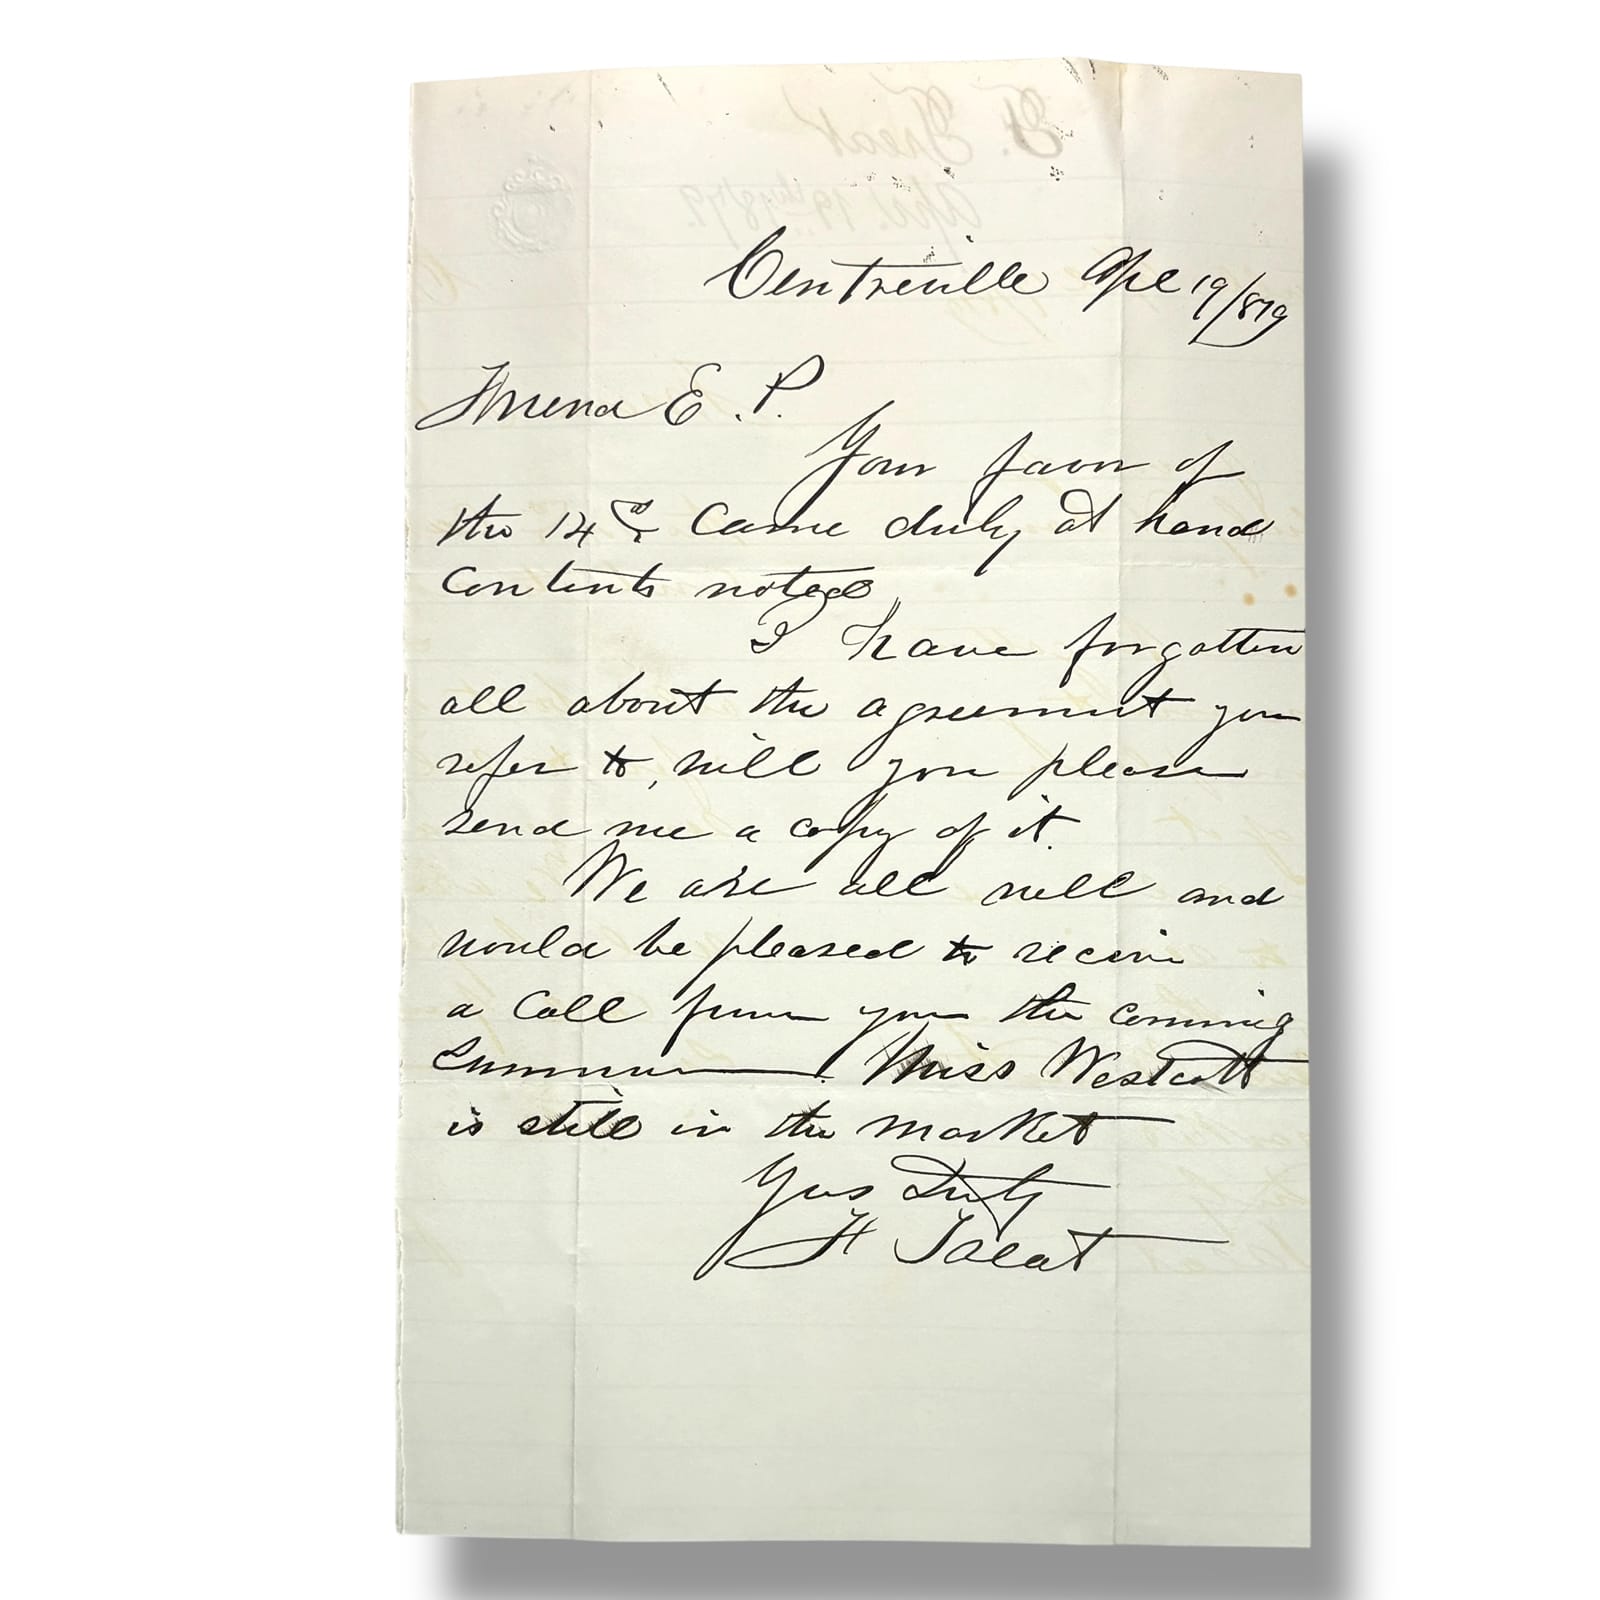 F. Treat
April 19th 1879.
Centreville Apl 19/879
Friend E. P.
Your favor of
the 14th Came duly at hand
Contents noted
I have forgotten
all about the agreement you
refer to, will you please
send me a copy of it.
We are all well and
would be pleased to receive
a Call from you the coming
Summer. Miss Westcott
is still in the market
Yrs Truly
F Treat